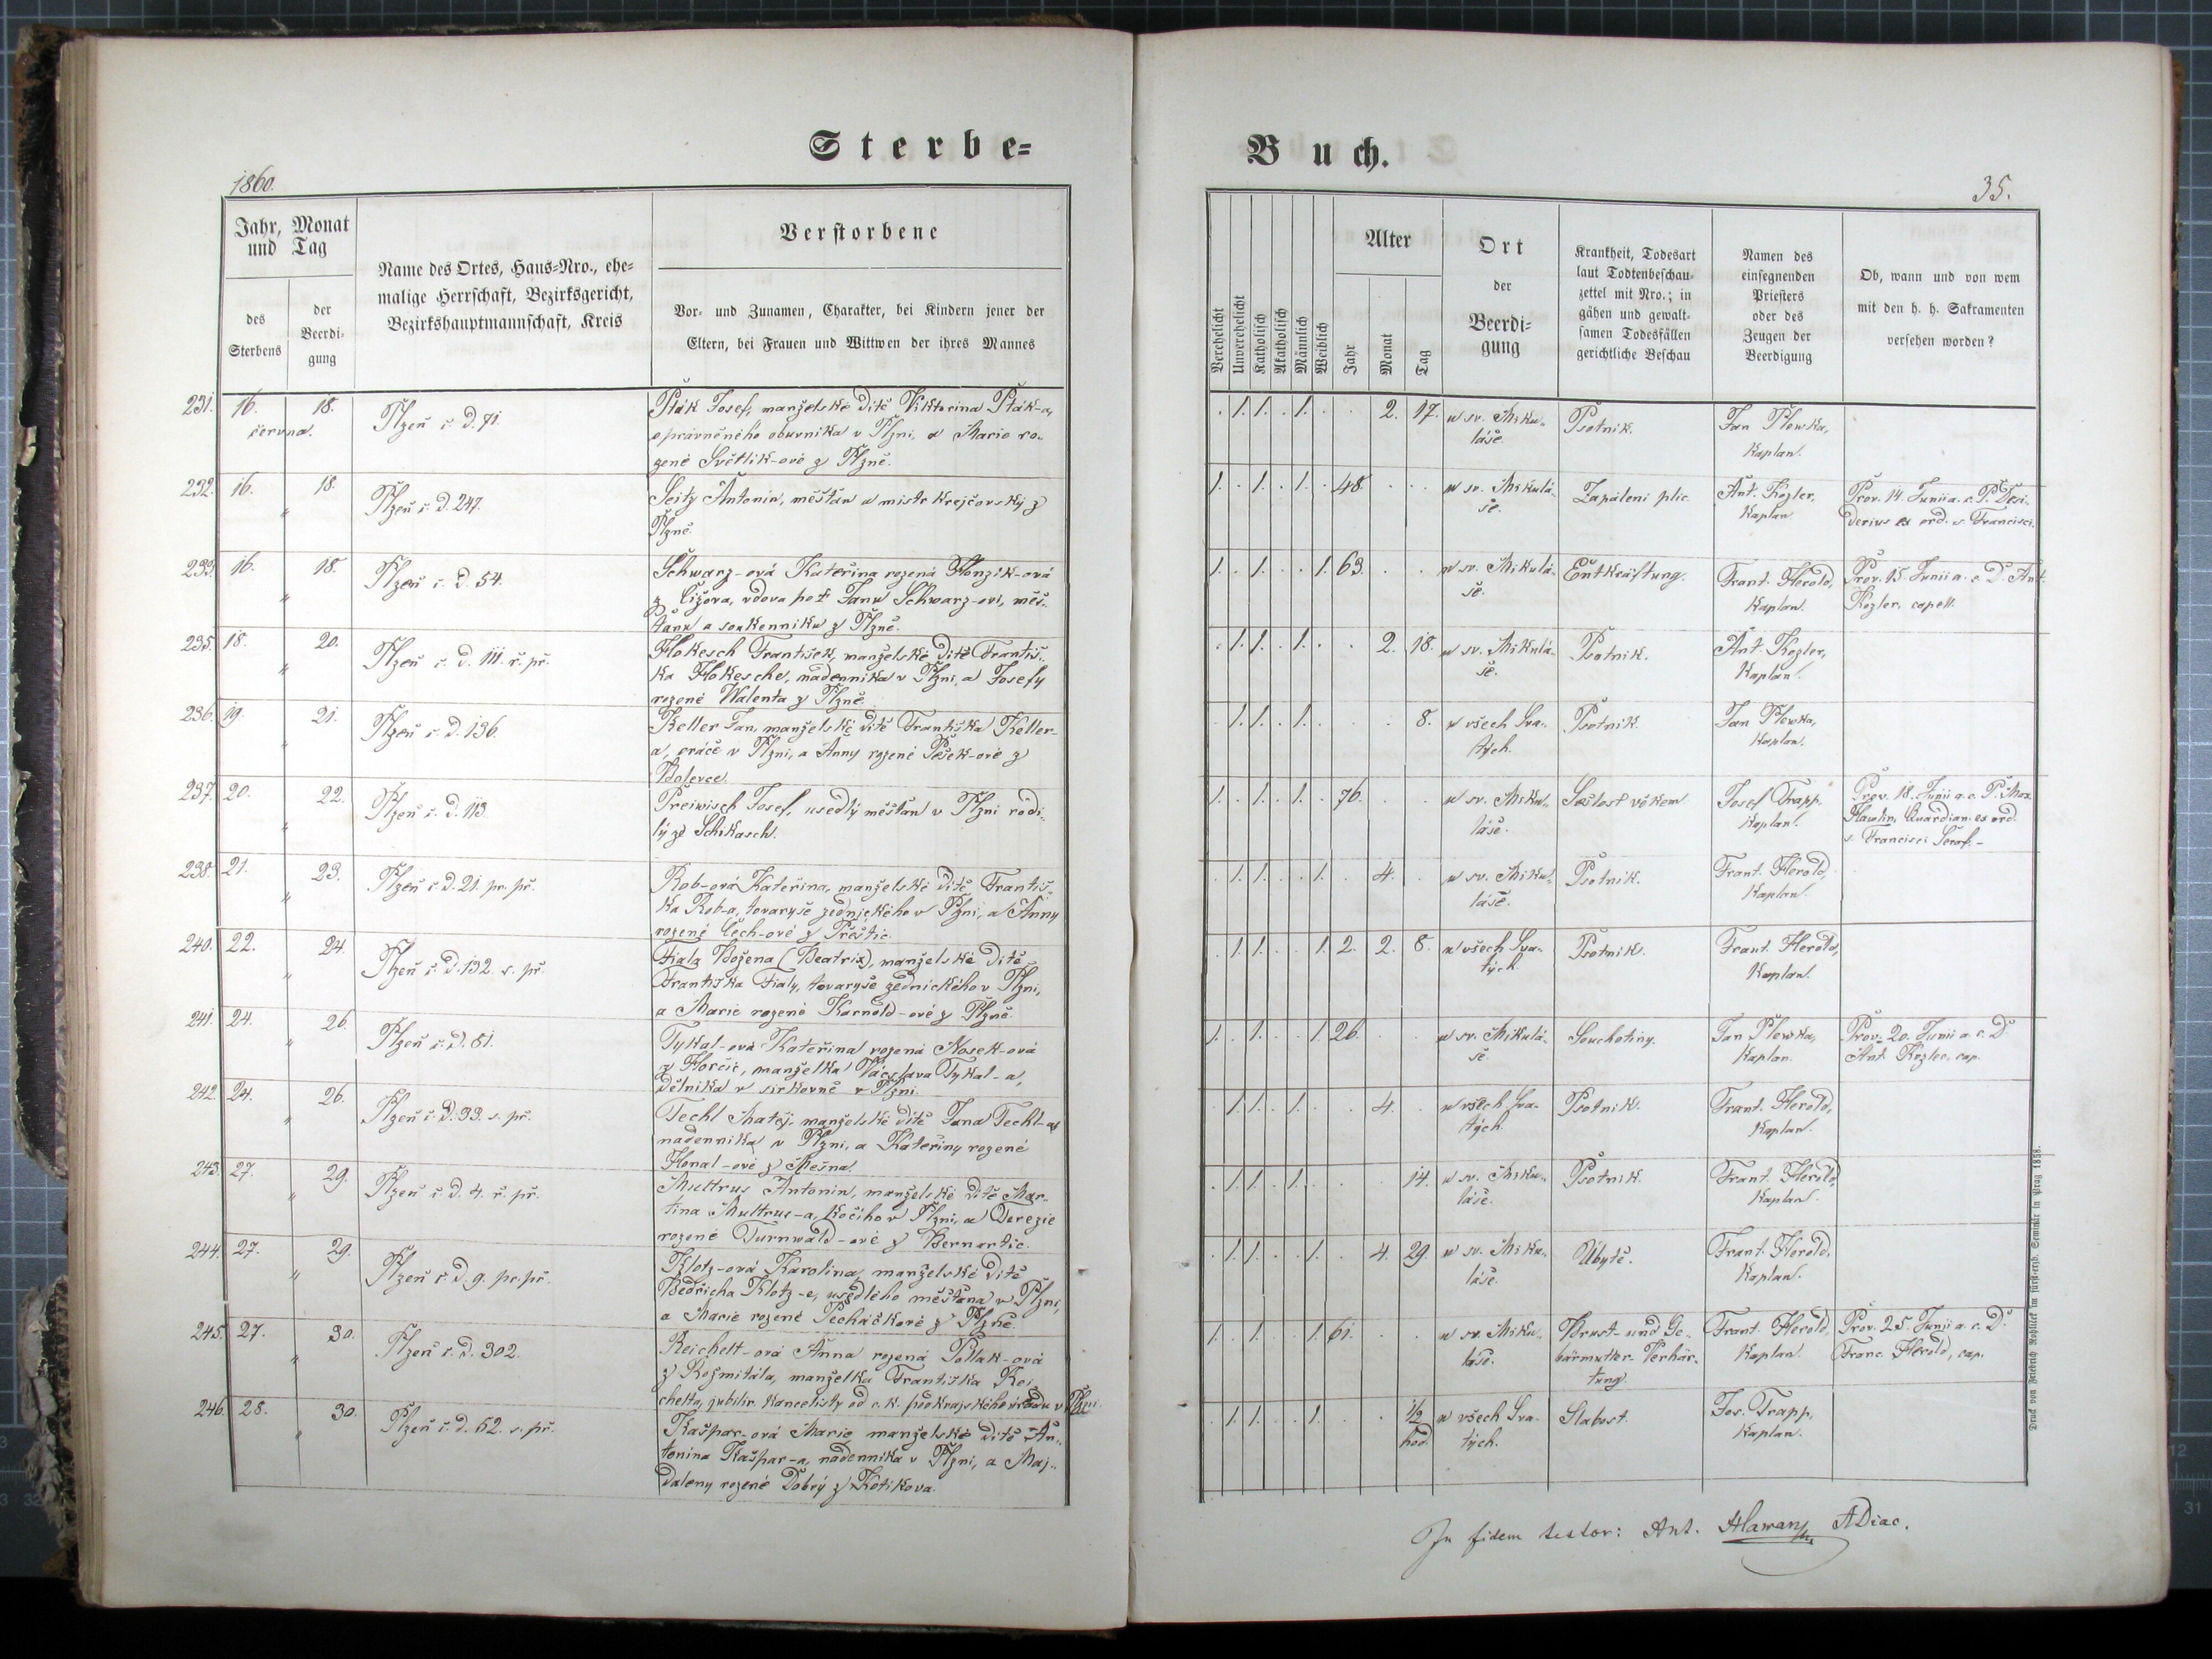 Sterbe=
1860.
Jahr, Monat
und Tag
des
Sterbens
der
Beerdi-
gung
Name des Ortes, Haus=Nro., ehe=
malige Herrschaft, Bezirksgericht,
Bezirkshauptmannschaft, Kreis
Verstorbene
Vor= und Zunamen, Charakter, bei Kindern jener der
Eltern, bei Frauen und Wittwen der ihres Mannes
231. 16. 18. Plzeň č. d. 71.
června.
Pták Josef, manželské dítě Viktorina Pták-a,
oprávněného obuvníka v Plzni, a Marie ro-
zené Světlík-ové z Plzně.
232. 16. 18. Plzeň č. d. 247.
Seitz Antonín, měšťan a mistr krejčovský z
Plzně.
233. 16. 18. Plzeň č. d. 54.
Schwarz-ová Kateřina rozená Honzík-ová
z Čižova, vdova po † Janu Schwarz-ovi, měš-
ťanu a soukenníku z Plzně.
235. 18. 20. Plzeň č. d. 111. ř. př.
Hokesch František, manželské dítě Františ-
ka Hokesche, nádenníka v Plzni, a Josefy
rozené Walenta z Plzně.
236. 19. 21. Plzeň č. d. 136.
Keller Jan, manželské dítě Františka Keller-
a, oráče v Plzni, a Anny rozené Pešek-ové z
Bolevce.
237. 20. 22. Plzeň č. d. 113.
Preiwisch Josef, usedlý měšťan v Plzni rodi-
lý ze Schikasch.
238. 21. 23. Plzeň č. d. 21. pr. př.
Rob-ová Kateřina, manželské dítě Františ-
ka Rob-a, tovaryše zednického v Plzni, a Anny
rozené Čech-ové z Přeštic.
240. 22. 24. Plzeň č. d. 132. s. př.
Fiala Božena (Beatrix), manželské dítě
Františka Fialy, tovaryše zednického v Plzni,
a Marie rozené Karnold-ové z Plzně.
241. 24. 26. Plzeň č. d. 81.
Tykal-ová Kateřina rozená Nosek-ová
z Horčic, manželka Václava Tykal-a,
dělníka v sirkovně v Plzni.
242. 24. 26. Plzeň č. d. 33. s. př.
Techl Matěj, manželské dítě Jana Techl-a,
nádenníka v Plzni, a Kateřiny rozené
Honal-ové z Mešna.
243. 27. 29. Plzeň č. d. 4. ř. př.
Multrus Antonín, manželské dítě Mar-
tina Multrus-a, kočího v Plzni, a Terezie
rozené Turnwald-ové z Bernartic.
244. 27. 29. Plzeň č. d. 9. pr. př.
Klotz-ová Karolina, manželské dítě
Bedřicha Klotz-e, usedlého měšťana v Plzni,
a Marie rozené Pecháčkové z Plzně.
245. 27. 30. Plzeň č. d. 302.
Reichelt-ová Anna rozená Pollak-ová
z Rožmitála, manželka Františka Rei-
chelta, jubilir. kancelisty od c. k. krajského úřadu v Plzni.
246. 28. 30. Plzeň č. d. 62. s. př.
Kašpar-ová Marie manželské dítě An-
tonína Kašpar-a, nádenníka v Plzni, a Maj-
daleny rozené Dobrý z Kotikova.
Buch.
35.
Verehelicht
Unverehelicht
Katholisch
Akatholisch
Männlich
Weiblich
Alter
Jahr
Monat
Tag
Ort
der
Beerdi-
gung
Krankheit, Todesart
laut Todtenbeschau-
zettel mit Nro.; in
gähen und gewalt-
samen Todesfällen
gerichtliche Beschau
Namen des
einsegnenden
Priesters
oder des
Zeugen der
Beerdigung
Ob, wann und von wem
mit den h. h. Sakramenten
versehen worden?
. 1. 1. . 1. . . 2. 17. u sv. Miku- Psotník. Jan Plewka,
láše. Kaplan.
1. . 1. . 1. . 48. . . u sv. Mikulá- Zapálení plic. Ant. Kozler, Prov. 14. Junii a. c. P. Desi-
še. Kaplan derius ex ord. s. Francisci.
1. . 1. . . 1. 63. . . u sv. Mikulá- Entkräftung. Frant. Herold, Prov. 15. Junii a. c. D. Ant.
še. Kaplan. Kozler, capell.
. 1. 1. . 1. . . 2. 18. u sv. Mikulá- Psotník. Ant. Kozler,
še. Kaplan.
. 1. 1. . 1. . . . 8. u všech Sva- Psotník. Jan Plewka,
tých. Kaplan.
1. . 1. . 1. . 76. . . u sv. Miku- Sešlost věkem Josef Trapp, Prov. 18. Junii a. c. P. Max.
láše. Kaplan. Hawlin, Quardian. ex ord.
s. Francisci Seraf. -
. 1. 1. . . 1. . 4. . u sv. Miku- Psotník. Frant. Herold,
láše. Kaplan.
. 1. 1. . . 1. 2. 2. 8. u všech Sva- Psotník. Frant. Herold,
tých. Kaplan.
1. . 1. . . 1. 26. . . u sv. Mikulá- Souchotiny. Jan Plewka, Prov. 20. Junii a. c. D.
še. Kaplan. Ant. Kozler, cap.
. 1. 1. . 1. . . 4. . u všech Sva- Psotník. Frant. Herold,
tých. Kaplan.
. 1. 1. . 1. . . . 14. u sv. Miku- Psotník. Frant. Herold,
láše. Kaplan.
. 1. 1. . . 1. . 4. 29. u sv. Miku- Úbytě. Frant. Herold,
láše. Kaplan.
1. . 1. . . 1. 61. . . u sv. Miku- Brust- und Ge- Frant. Herold, Prov. 25. Junii a. c. D.
láše. bärmutter- Verhär- Kaplan. Franc. Herold, cap.
tung.
. 1. 1. . . 1. . . 1/2 u všech Sva- Slabost. Jos. Trapp,
hod. tých. Kaplan.
Druck von Friedrich Rohliček im fürst-erzb. Seminär in Prag 1858.
In fidem testor: Ant. Hlawan ADiac.